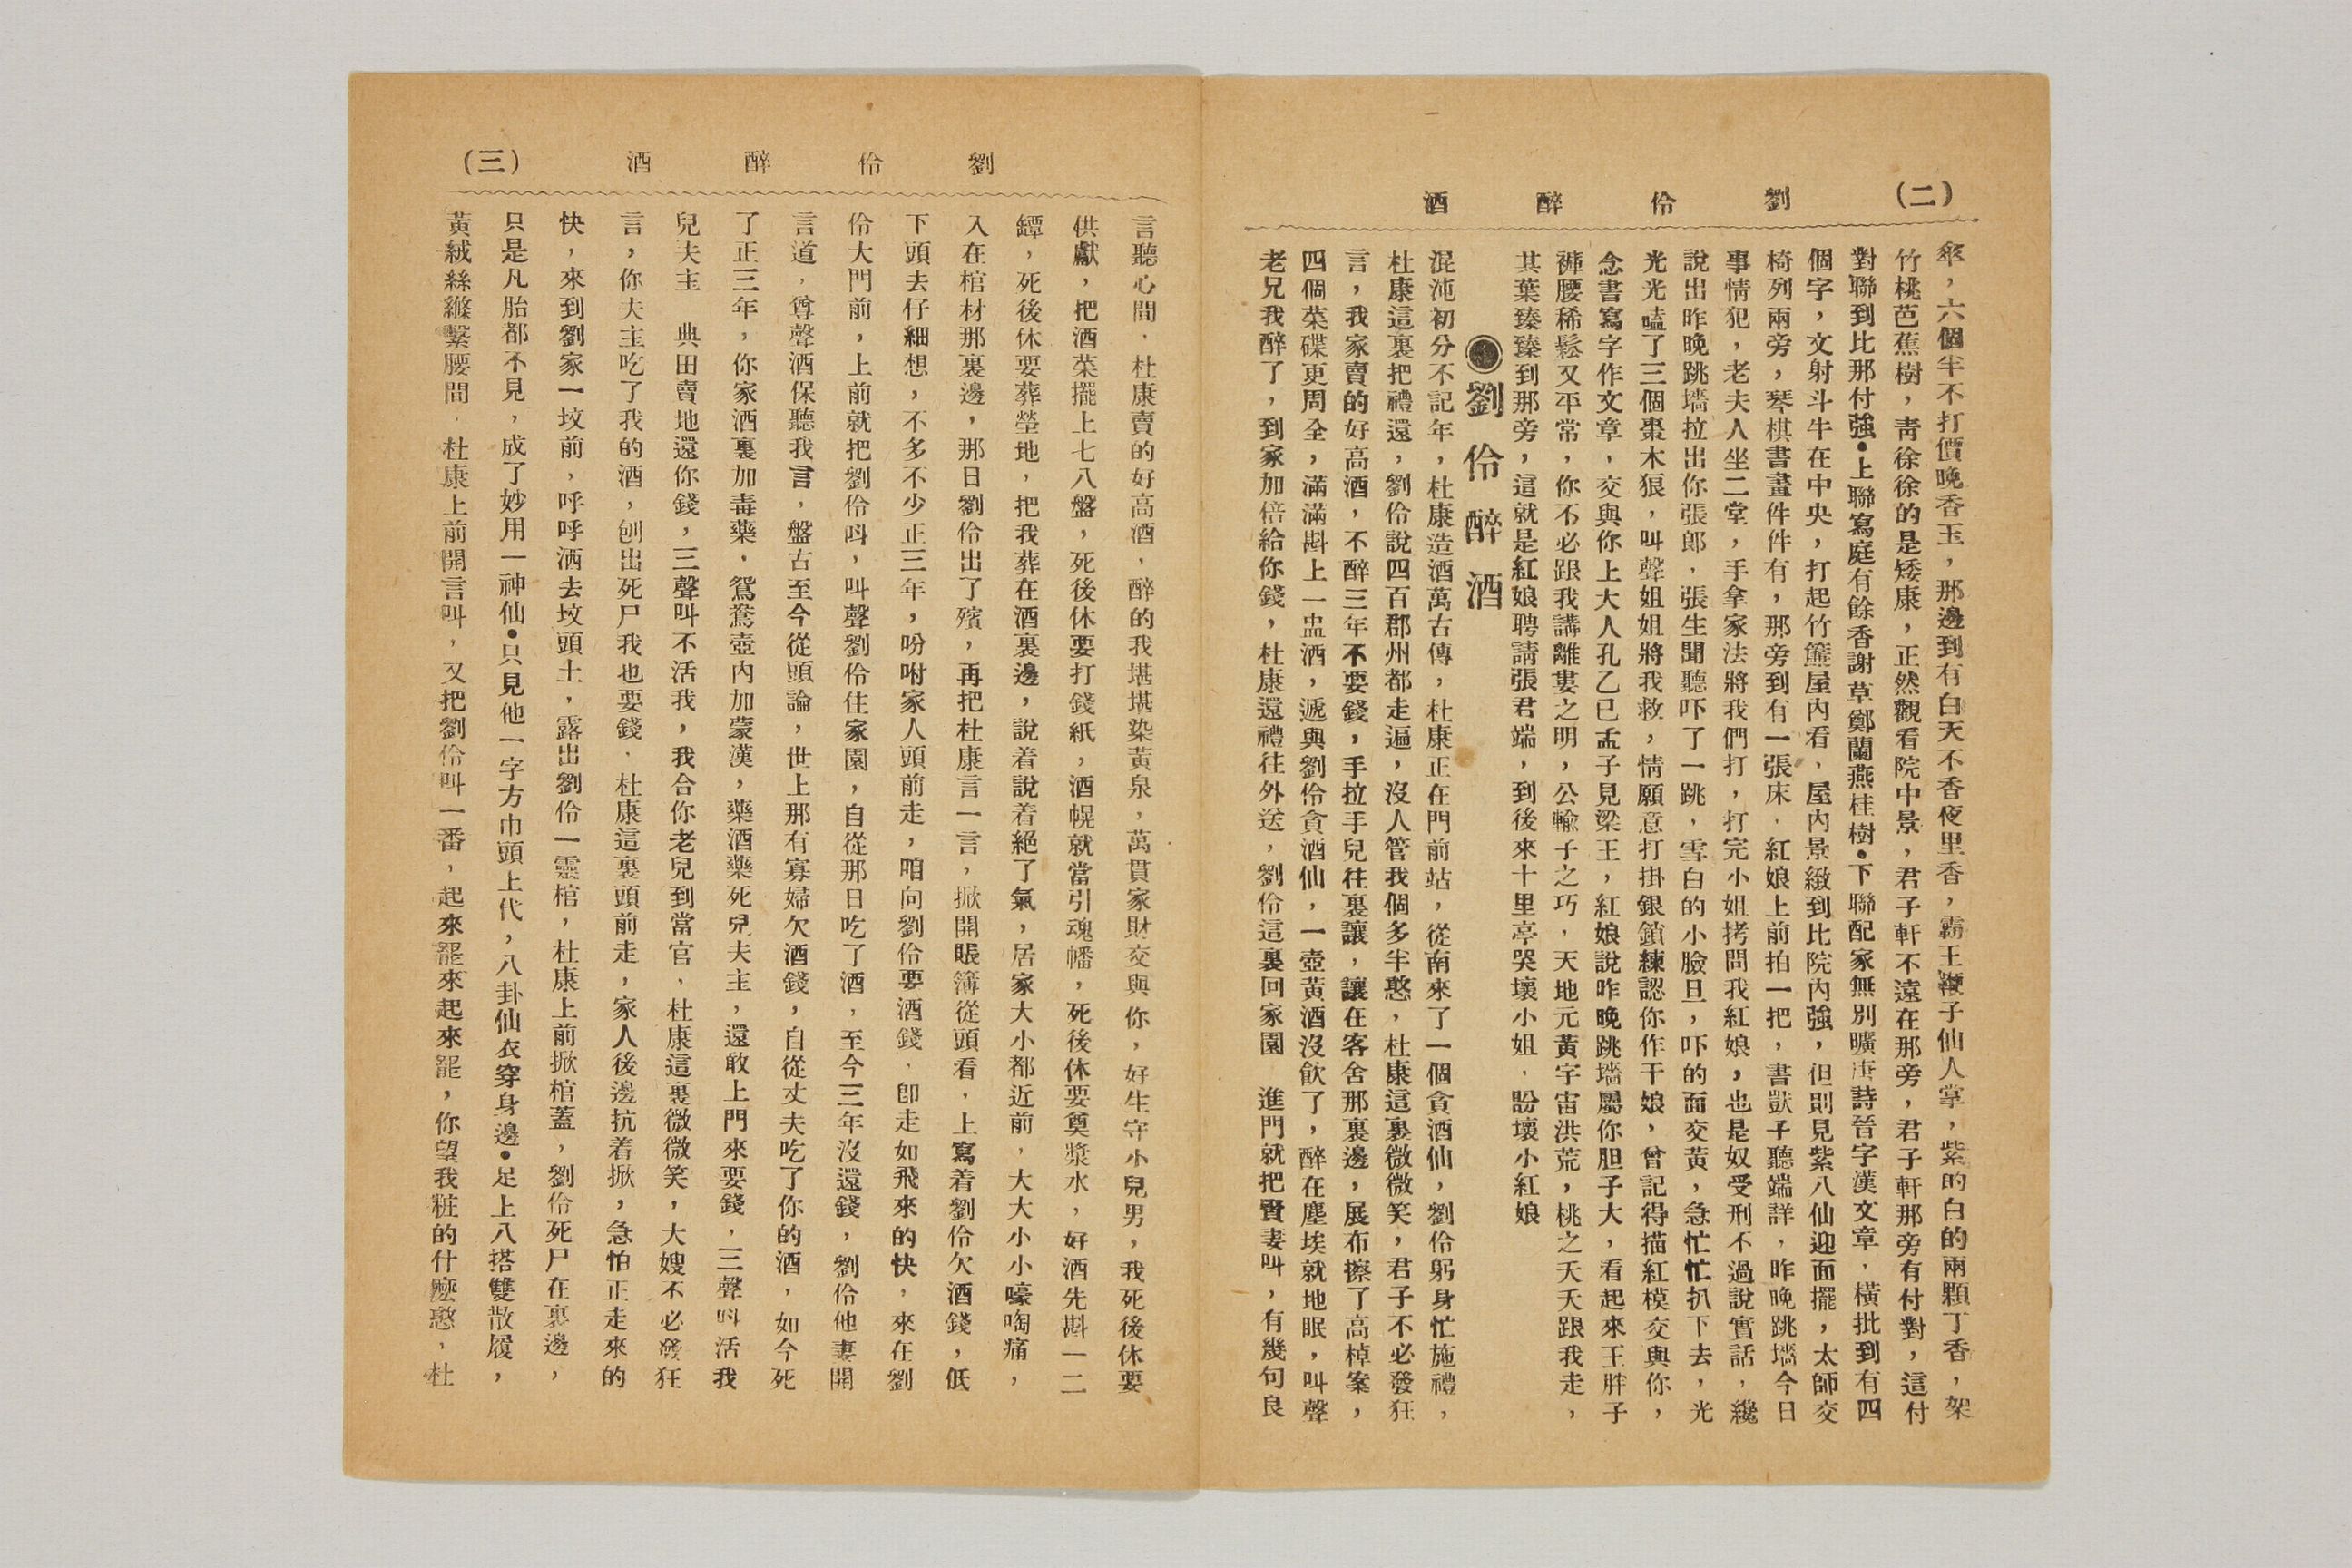 (二) 劉伶醉酒
傘，六個半不打價晚香玉，那邊到有白天不香夜里香，霸王鞭子仙人掌，紫的白的兩顆丁香，架
竹桃芭蕉樹，靑徐徐的是矮康，正然觀看院中景，君子軒不遠在那旁，君子軒那旁有付對，這付
對聯到比那付強•上聯寫庭有餘香謝草鄭蘭燕桂樹•下聯配家無別曠唐詩晉字漢文章，橫批到有四
個字，文射斗牛在中央，打起竹簾屋內看，屋內景緻到比院內強，但則見紫八仙迎面擺，太師交
椅列兩旁，琴棋書畫件件有，那旁到有一張床，紅娘上前拍一把，書獃子聽端詳，昨晚跳墻今日
事情犯，老夫人坐二堂，手拿家法將我們打，打完小姐拷問我紅娘，也是奴受刑不過說實話，纔
說出昨晚跳墻拉出你張郎，張生聞聽吓了一跳，雪白的小臉旦，吓的面交黃，急忙忙扒下去，光
光光嗑了三個棗木狼，叫聲姐姐將我救，情願意打掛銀鎖練認你作干娘，曾記得描紅模交與你，
念書寫字作文章，交與你上大人孔乙已孟子見梁王，紅娘說昨晚跳墻屬你胆子大，看起來王胖子
褲腰稀鬆又平常，你不必跟我講離婁之明，公輸子之巧，天地元黃字宙洪荒，桃之夭夭跟我走，
其葉臻臻到那旁，這就是紅娘聘請張君端，到後來十里亭哭壞小姐，盼壞小紅娘
劉伶醉酒
混沌初分不記年，杜康造酒萬古傳，杜康正在門前站，從南來了一個貪酒仙，劉伶躬身忙施禮，
杜康這裏把禮還，劉伶說四百郡州都走遍，沒人管我個多半憨，杜康這裏微微笑，君子不必發狂
言，我家賣的好高酒，不醉三年不要錢，手拉手兒往裏讓，讓在客舍那裏邊，展布擦了高棹案，
四個菜碟更周全，滿滿斟上一盅酒，遞與劉伶貪酒仙，一壺黃酒沒飲了，醉在塵埃就地眠，叫聲
老兄我醉了，到家加倍給你錢，杜康還禮往外送，劉伶這裏回家園　進門就把賢妻叫，有幾句良
劉伶醉酒 (三)
言聽心間，杜康賣的好高酒，醉的我堪堪染黃泉，萬貫家財交與你，好生守小兒男，我死後休要
供獻，把酒菜擺上七八盤，死後休要打錢紙，酒幌就當引魂幡，死後休要奠漿水，好酒先斟一二
罈，死後休要葬塋地，把我葬在酒裏邊，說着說着絕了氣，居家大小都近前，大大小小嚎啕痛，
入在棺材那裏邊，那日劉伶出了殯，再把杜康言一言，掀開賬簿從頭看，上寫着劉伶欠酒錢，低
下頭去仔細想，不多不少正三年，吩咐家人頭前走，咱向劉伶要酒錢，卽走如飛來的快，來在劉
伶大門前，上前就把劉伶呌，叫聲劉伶住家園，自從那日吃了酒，至今三年沒還錢，劉伶他妻開
言道，尊聲酒保聽我言，盤古至今從頭論，世上那有寡婦欠酒錢，自從丈夫吃了你的酒，如今死
了正三年，你家酒裏加毒藥，鴛鴦壺內加蒙漢，藥酒藥死兒夫主，還敢上門來要錢，三聲呌活我
兒夫主　典田賣地還你錢，三聲叫不活我，我合你老兒到當官，杜康這裏微微笑，大嫂不必發狂
言，你夫主吃了我的酒，刨出死尸我也要錢，杜康這裏頭前走，家人後邊抗着掀，急怕正走來的
快，來到劉家一坟前，呼呼洒去坟頭土，露出劉伶一靈棺，杜康上前掀棺蓋，劉伶死尸在裏邊，
只是凡胎都不見，成了妙用一神仙•只見他一字方巾頭上代，八卦仙衣穿身邊•足上八搭雙散履，
黃絨絲縧繫腰間，杜康上前開言叫，又把劉伶叫一番，起來罷來起來罷，你望我粧的什麼憨，杜